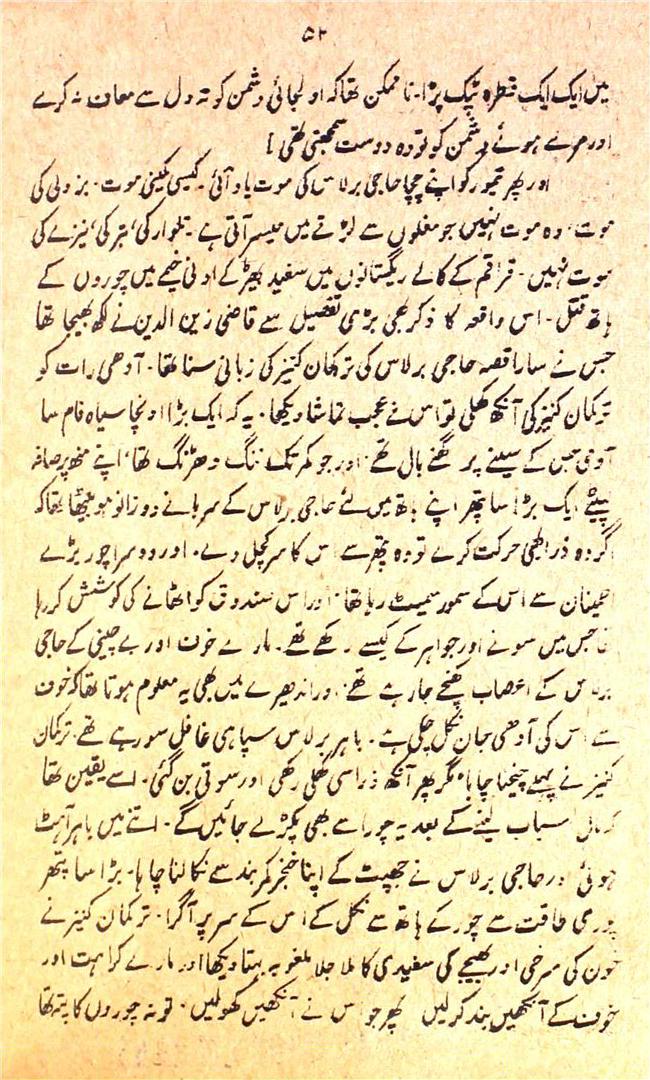 ۵۲
میں ایک ایک قطرہ ٹپک پڑا۔ نا ممکن تھا کہ اولجائی دشمن کو تہ دل سے معاف نہ کرے
اور مرے ہوئے دشمن کو تو وہ دوست سمجھتی تھی!
اور پھر تیمور کو اپنے چچا حاجی برلاس کی موت یاد آئی۔ کیسی کمینی موت۔ بزدلی کی
موت۔ وہ موت نہیں جو مغلوں سے لڑتے میں میسر آتی ہے۔ تلوار کی، تبر کی، نیزے کی
موت نہیں۔ قراقم کے کالے ریگستانوں میں سفید بھیڑ کے اونی خیمے میں چوروں کے
ہاتھ قتل۔ اس واقعہ کا ذکر بھی بڑی تفصیل سے قاضی زین الدین نے لکھ بھیجا تھا
جس نے سارا قصہ حاجی برلاس کی ترکمان کنیز کی زبانی سنا تھا۔ آدھی رات کو
ترکمان کنیز کی آنکھ کھلی تو اس نے عجب تماشا دیکھا۔ یہ کہ ایک بڑا اونچا سیاہ فام سا
آدمی جس کے سینے پر گھنے بال تھے اور جو کمر تک ننگ دھڑنگ تھا، اپنے منھ پر صافہ
لپیٹے ایک بڑا سا پتھر اپنے ہاتھ میں لئے حاجی برلاس کے سرہانے دو زانو ہو بیٹھا تھا کہ
اگر وہ ذرا بھی حرکت کرے تو وہ پتھر سے اس کا سر کچل دے۔ اور دوسرا چور بڑے
اطمینان سے اس کے سمور سمیٹ رہا تھا، اور اس صندوق کو اٹھانے کی کوشش کر رہا
تھا جس میں سونے اور جواہر کے کیسے رکھے تھے۔ مارے خوف اور بے چینی کے حاجی
برلاس کے اعصاب کھنچے جا رہے تھے، اور اندھیرے میں بھی یہ معلوم ہوتا تھا کہ خوف
سے اس کی آدھی جان نکل چکی ہے۔ باہر برلاس سپاہی غافل سو رہے تھے۔ ترکمان
کنیز نے پہلے چیخنا چاہا، مگر پھر آنکھ ذرا سی کھلی رکھی اور سوتی بن گئی۔ اسے یقین تھا
کہ مال اسباب لینے کے بعد یہ چور اسے بھی پکڑ لے جائیں گے۔ اتنے میں باہر آہٹ
ہوئی اور حاجی برلاس نے جھپٹ کے اپنا خنجر کمر بند سے نکالنا چاہا۔ بڑا سا پتھر
پوری طاقت سے چور کے ہاتھ سے نکل کے اس کے سر پر آ گرا۔ ترکمان کنیز نے
خون کی سرخی اور بھیجے کی سفیدی کا ملا جلا ملغوبہ بہتا دیکھا اور مارے کراہت اور
خوف کے آنکھیں بند کر لیں پھر جو اس نے آنکھیں کھولیں۔ تو نہ چوروں کا پتہ تھا